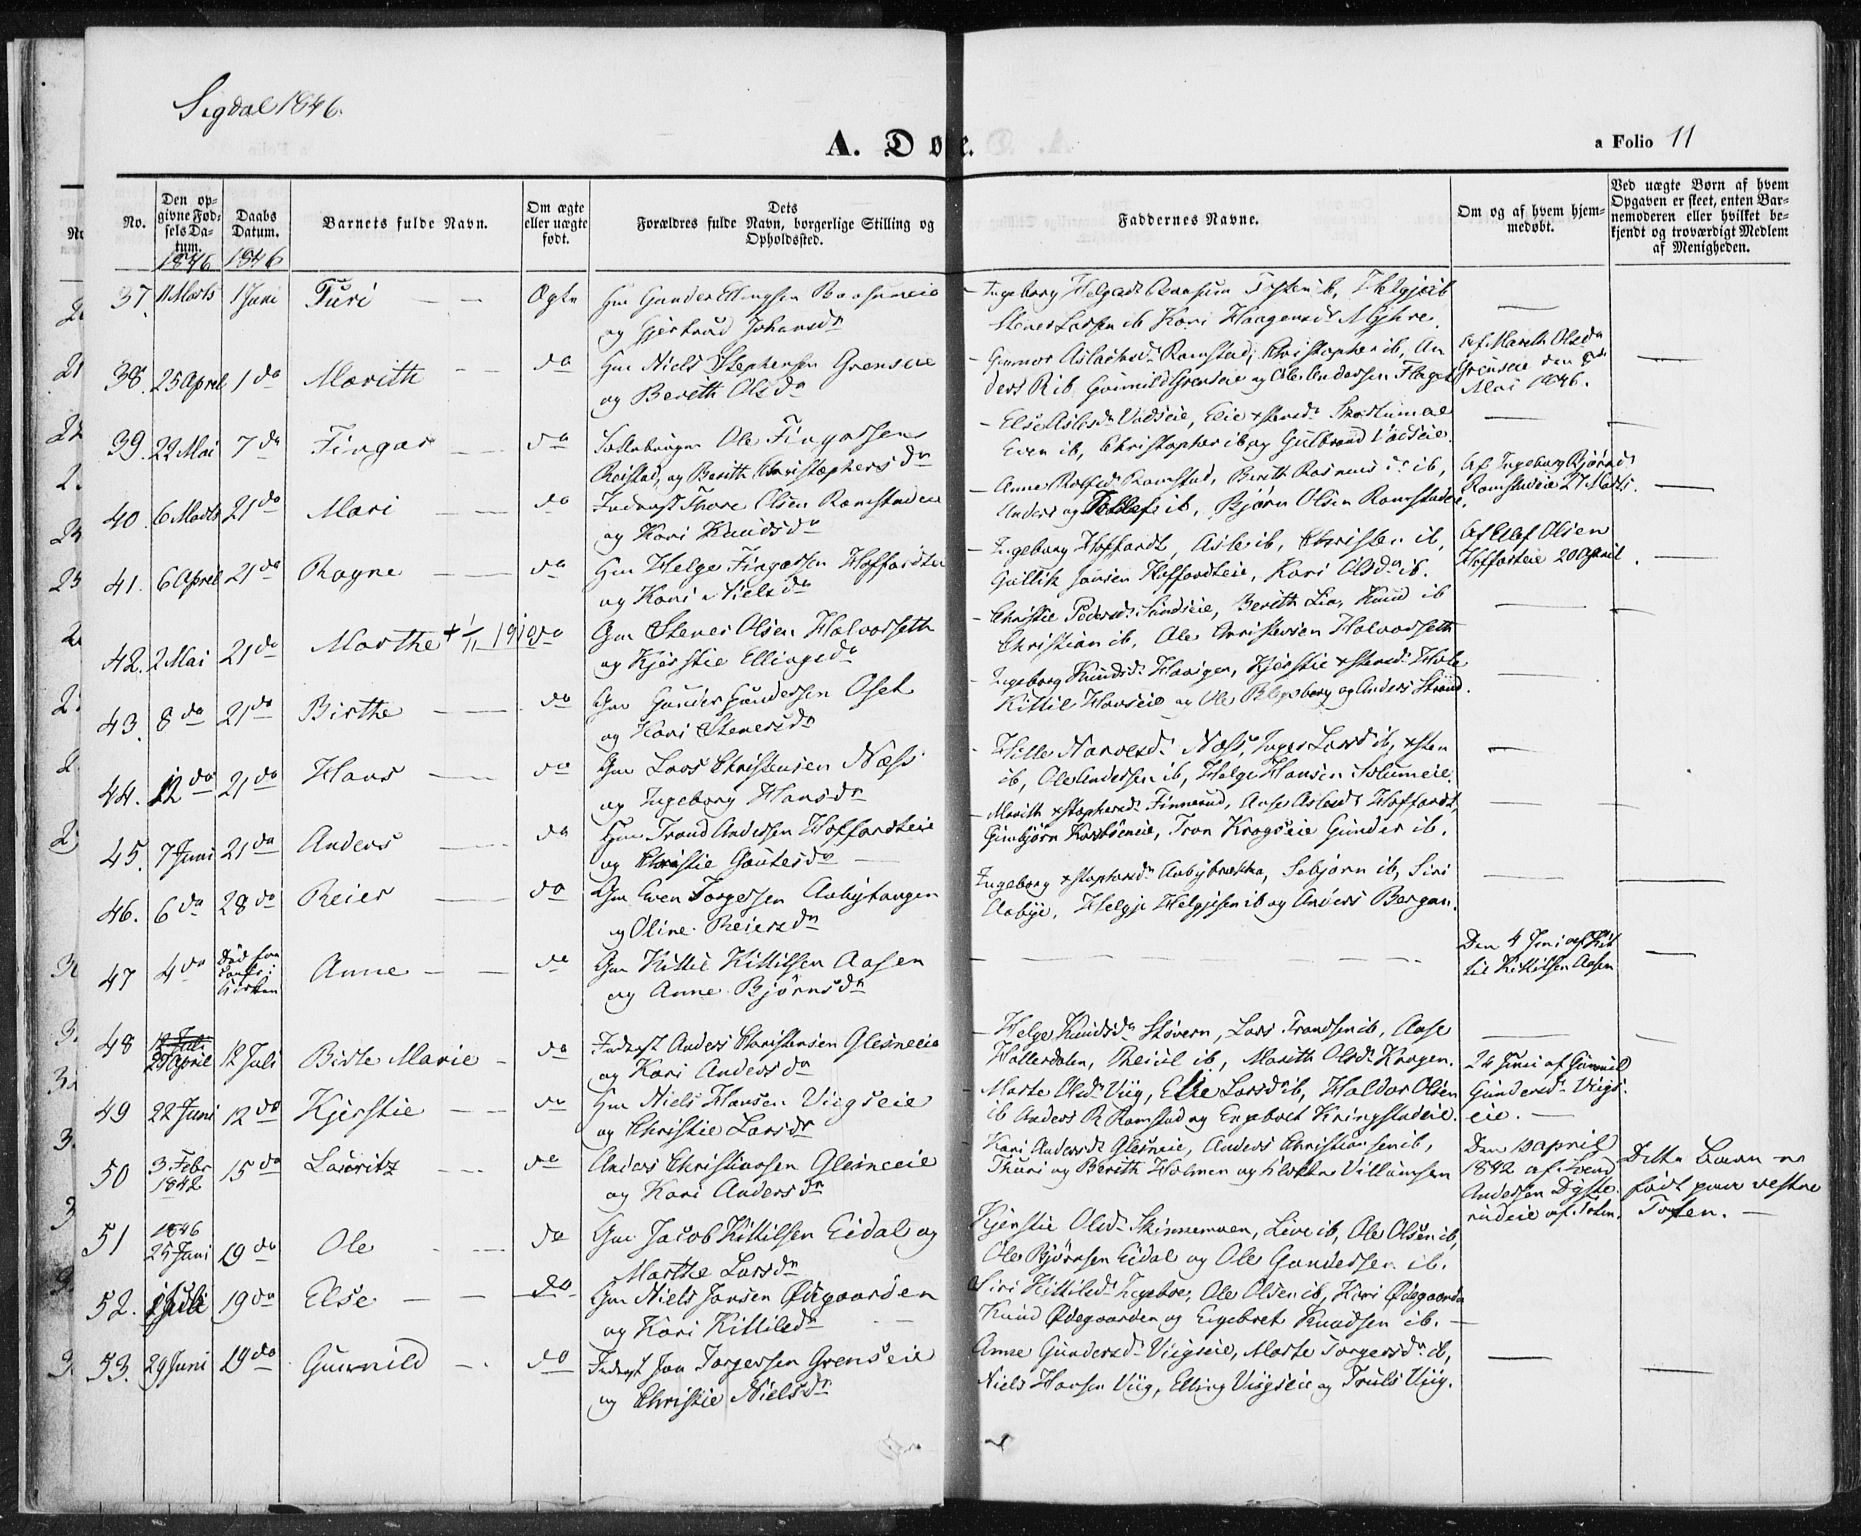 Sigdal 1846.
A. Døe.
a Folio 11
No.
Den opgivne FødselsDatum.
1846
Daabs Datum.
1846
Barnets fulde Navn.
Om ægte eller uægte født.
Dets Forældres fulde Navn, borgerlige Stilling og Opholdssted.
Faddernes Navne.
Om og af hvem hjemmedøbt.
Ved uægte Børn af hvem Opgaven er skeet, enten Barnemoderen eller hvilket bekjendt og troværdigt Medlem af Menigheden.
37. 11 Marts 1 Juni Turi Ægte Hm Gunder Ellingsen
og Gjertrud Johansdr
Ingeborg Helgesdr ib, Helgje ib
Stener Larsen ib Kari Haagensdr Myhre.
38. 25 April 1 do Marith do Hm Niels Stephensen Grenseie
og Berith Olsdr
Gunnor Aslachsdr Ramstad, Christopher ib, An
ders R ib Gunnild Grenseie og Ole Andersen Flaget
Af Marith Olsdr
Grenseie den
Mai 1846.
39. 22 Mai 7 do Fingar do Ole Fingarsen
Reistad, og Berith Christophersdr
Else Aslesdr
Even ib, Christopher ib og Gulbrand
40. 6 Marts 21 do Mari do Inderst Thore Olsen Ramstadeie
og Kari Knudsdr
Anne Ramstad, Berith Rasmusdr ib,
Anders og Tollef ib, Bjørn Olsen Ramstadeie
Af Ingeborg Bjørnsdr
Ramstadeie 27 Marts.
41. 6 April 21 do Ragne do Hm Helge Fingarsen Hoffardteie
og Kari Nielsdr
Ingeborg Hoffardt, Asle ib, Christen ib,
Gullik Jansen Hoffardteie, Kari Olsdr ib.
Af Olsen
Hoffarteie 20 April
42. 2 Mai 21 do Marthe + 1/11 1919 do Gm Stener Olsen Halvorseth
og Kjerstie Ellingsdr
Christie Pedersdr Sundseie, Berith Lia, Knud ib
Christian ib, Ole Christensen Halvorseth
43. 8 do 21 do Birthe do Gm Gunder Gundersen Oset
og Kari Stenersdr
Ingeborg Knudsdr Haugen, Kjerstie Hole
Kittil Hovseie og Ole og Anders Strand.
44. 12 do 21 do Hans do Gm Lars Christensen Næss
og Ingeborg Hansdr
Hille Narvesdr Næss, Inger Larsd ib,
ib, Ole Andersen ib, Helge Hansen Solumeie.
45. 7 Juni 21 do Anders do Hm Trond Andersen Hoffardteie
og Christie Gautesdr
Marith Finnerud, Anse Aslesdr Hoffardt,
Gunbjørn, Tron Krogseie Gunder ib.
46. 6 do 28 do Reier do Gm Even Torgersen Aabyhaugen
og Oline Reiersdr
Ingeborg Aabybrekka, Sebjørn ib, Siri
Aabye, Helgje Helgjesen ib og Anders Bergan.
47 4 do Død før
i
Kirken
Anne do Gm Kittil Kittilsen Aasen
og Anne Bjørnsdr
Den 4 Juni af Kit
til Kittilsen Aasen
48 12 Juli
23 April 12 Juli Birte Marie do Inderst Anders Christensen Glesneeie
og Kari Andersdr
Helge Knudsdr Støvern, Lars Trondsen ib, Anse
Hallerdalen, ib, Marith Olsdr Krogen.
49 22 Juni 12 do Kjerstie do Hm Niels Hansen Viigseie
og Christie Larsdr
Marte Olsdr Viig, Else Larsdr ib, Haldor Olsen
ib Anders R Ramstad og Engebret Kringstadeie.
24 Juni af Gunnild
Gundersdr Viigs
eie.
50 3. Febr
1842 15 do Lauritz do Anders Christiansen Glesneeie
og Kari Andersdr
Kari Andersdr Glesneie, Anders Christiansen ib,
Thuri og Berith Holmen og Villumsen
Den 10 April
1842 af Svend
Andersen Dyste
rudeie af Toten.
Dette Barn er
født paa vestre
Toten.
51 1846
25 Juni 19 do Ole do Gm Jacob Kittilsen Eidal og
Marthe Larsdr
Kjerstie Olsdr Skinnemoen, Live ib, Ole Olsen ib,
Ole Bjørnsen Eidal og Ole Gundersen ib.
52. 1 Juli 19 do Else do Gm Niels Jansen Ødegaarden
og Kari Kittilsdr
Siri Kittilsdr, Ole Olsen ib, Kari Ødegaarden
Knud Ødegaarden og Engebret Knudsen ib.
53. 29 Juni 19 do Gunnild do Inderst Jon Torgersen Grenseie
og Christie Nielsdr
Anne Gundersdr Viigseie, Marte Torgersdr ib,
Niels Hansen Viig, Elling Viigseie og Truls Viig.